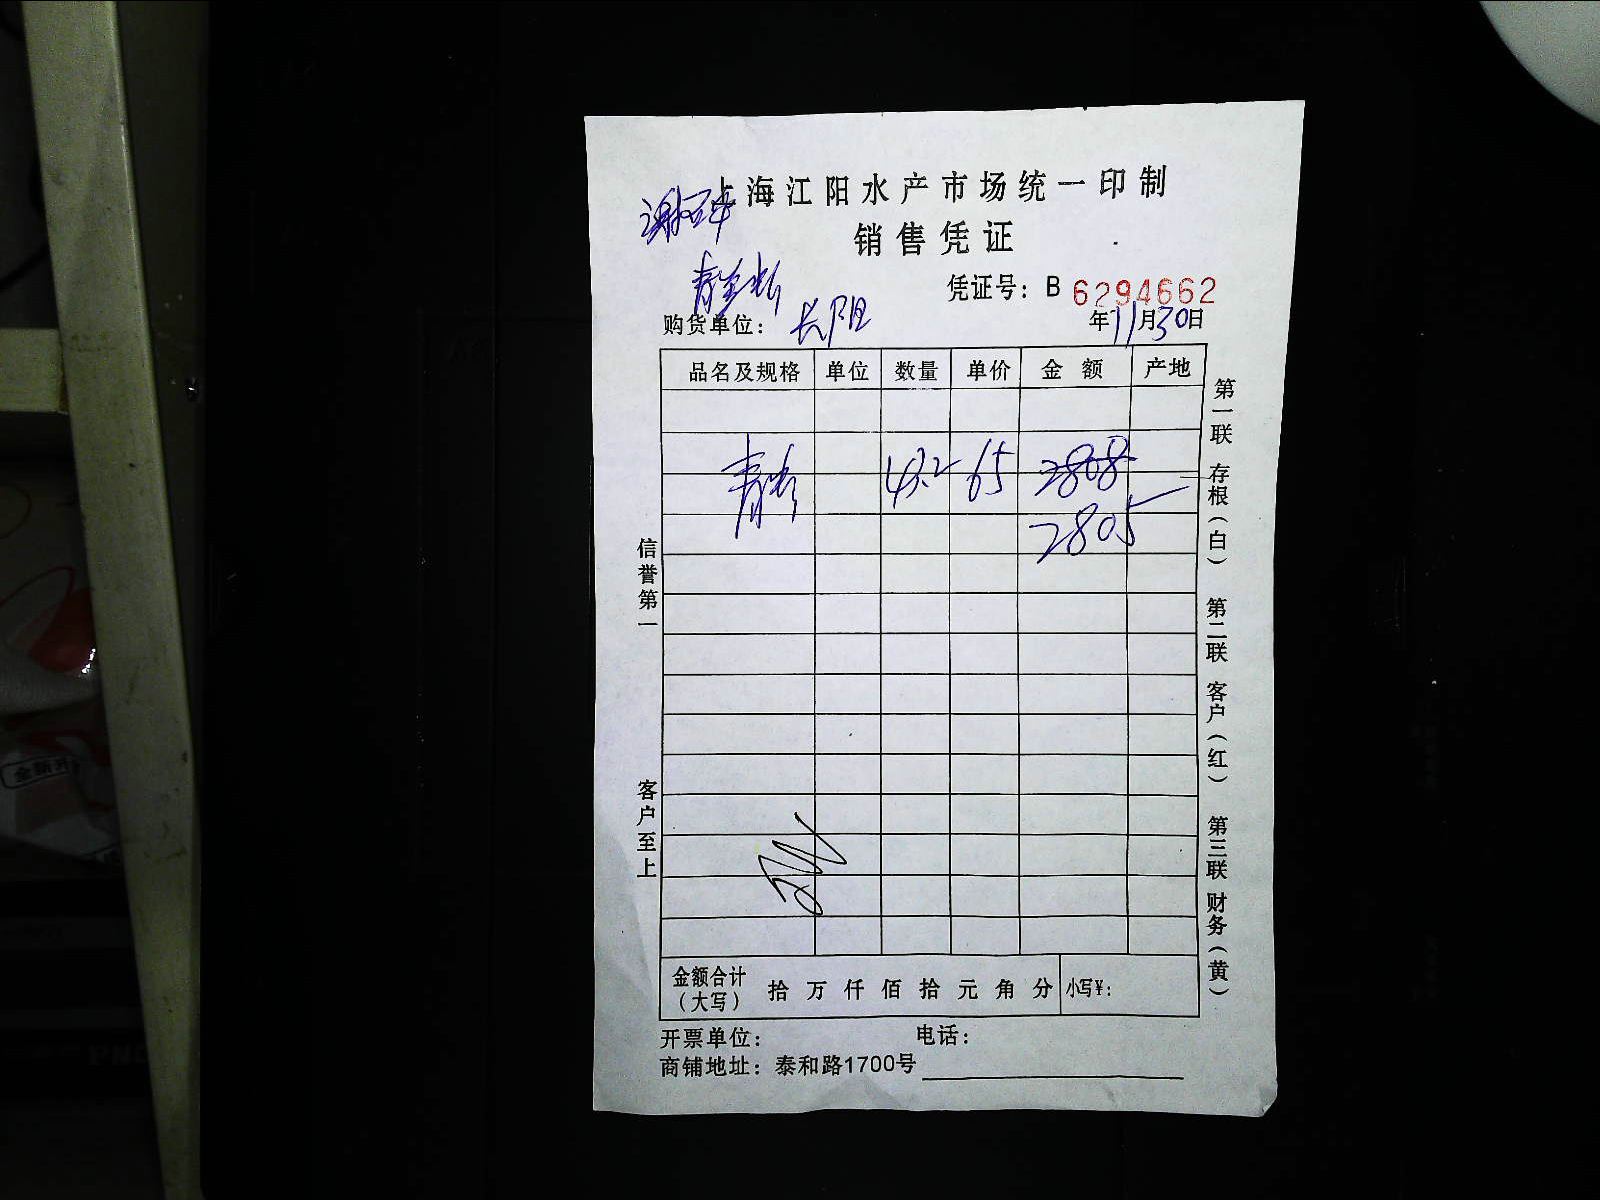 上海江阳水产市场统一印制
销售凭证
凭证号：B 6294662
购货单位：长阳
年11月30日
品名及规格 单位 数量 单价 金额 产地
43.2 65 2808
2805
信誉第一
客户至上
第一联 存根（白） 第二联 客户（红） 第三联 财务（黄）
金额合计（大写） 拾 万 仟 佰 拾 元 角 分 小写¥：
开票单位： 电话：
商铺地址：泰和路1700号